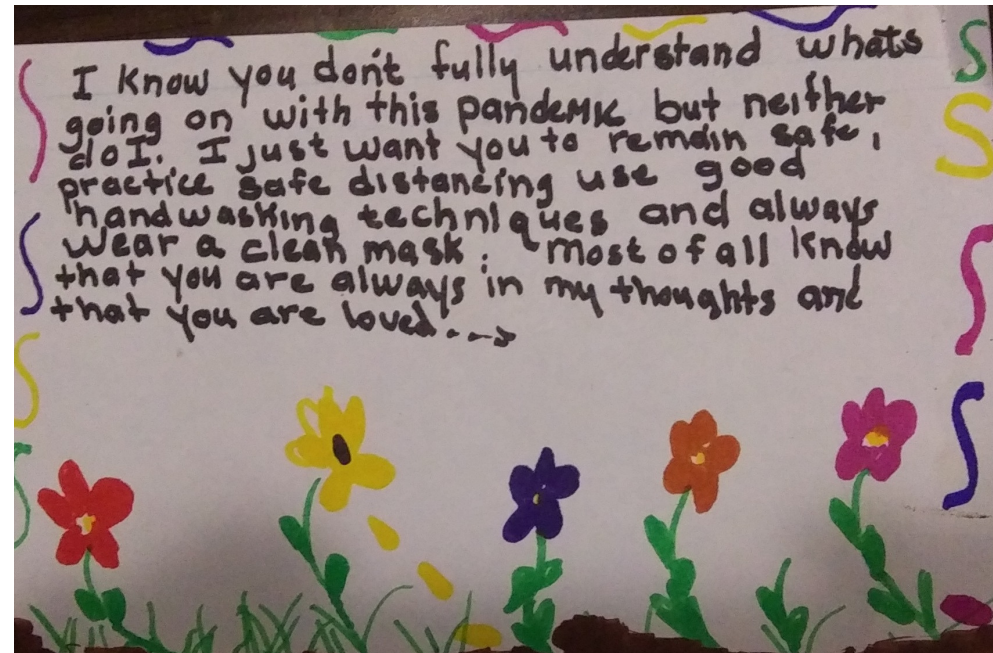 I know you don't fully understand whats
going on with this pandemic but neither
do I. I just want you to remain safe,
practice safe distancing use good
handwashing techniques and always
wear a clean mask. Most of all know
that you are always in my thoughts and
that you are loved...→